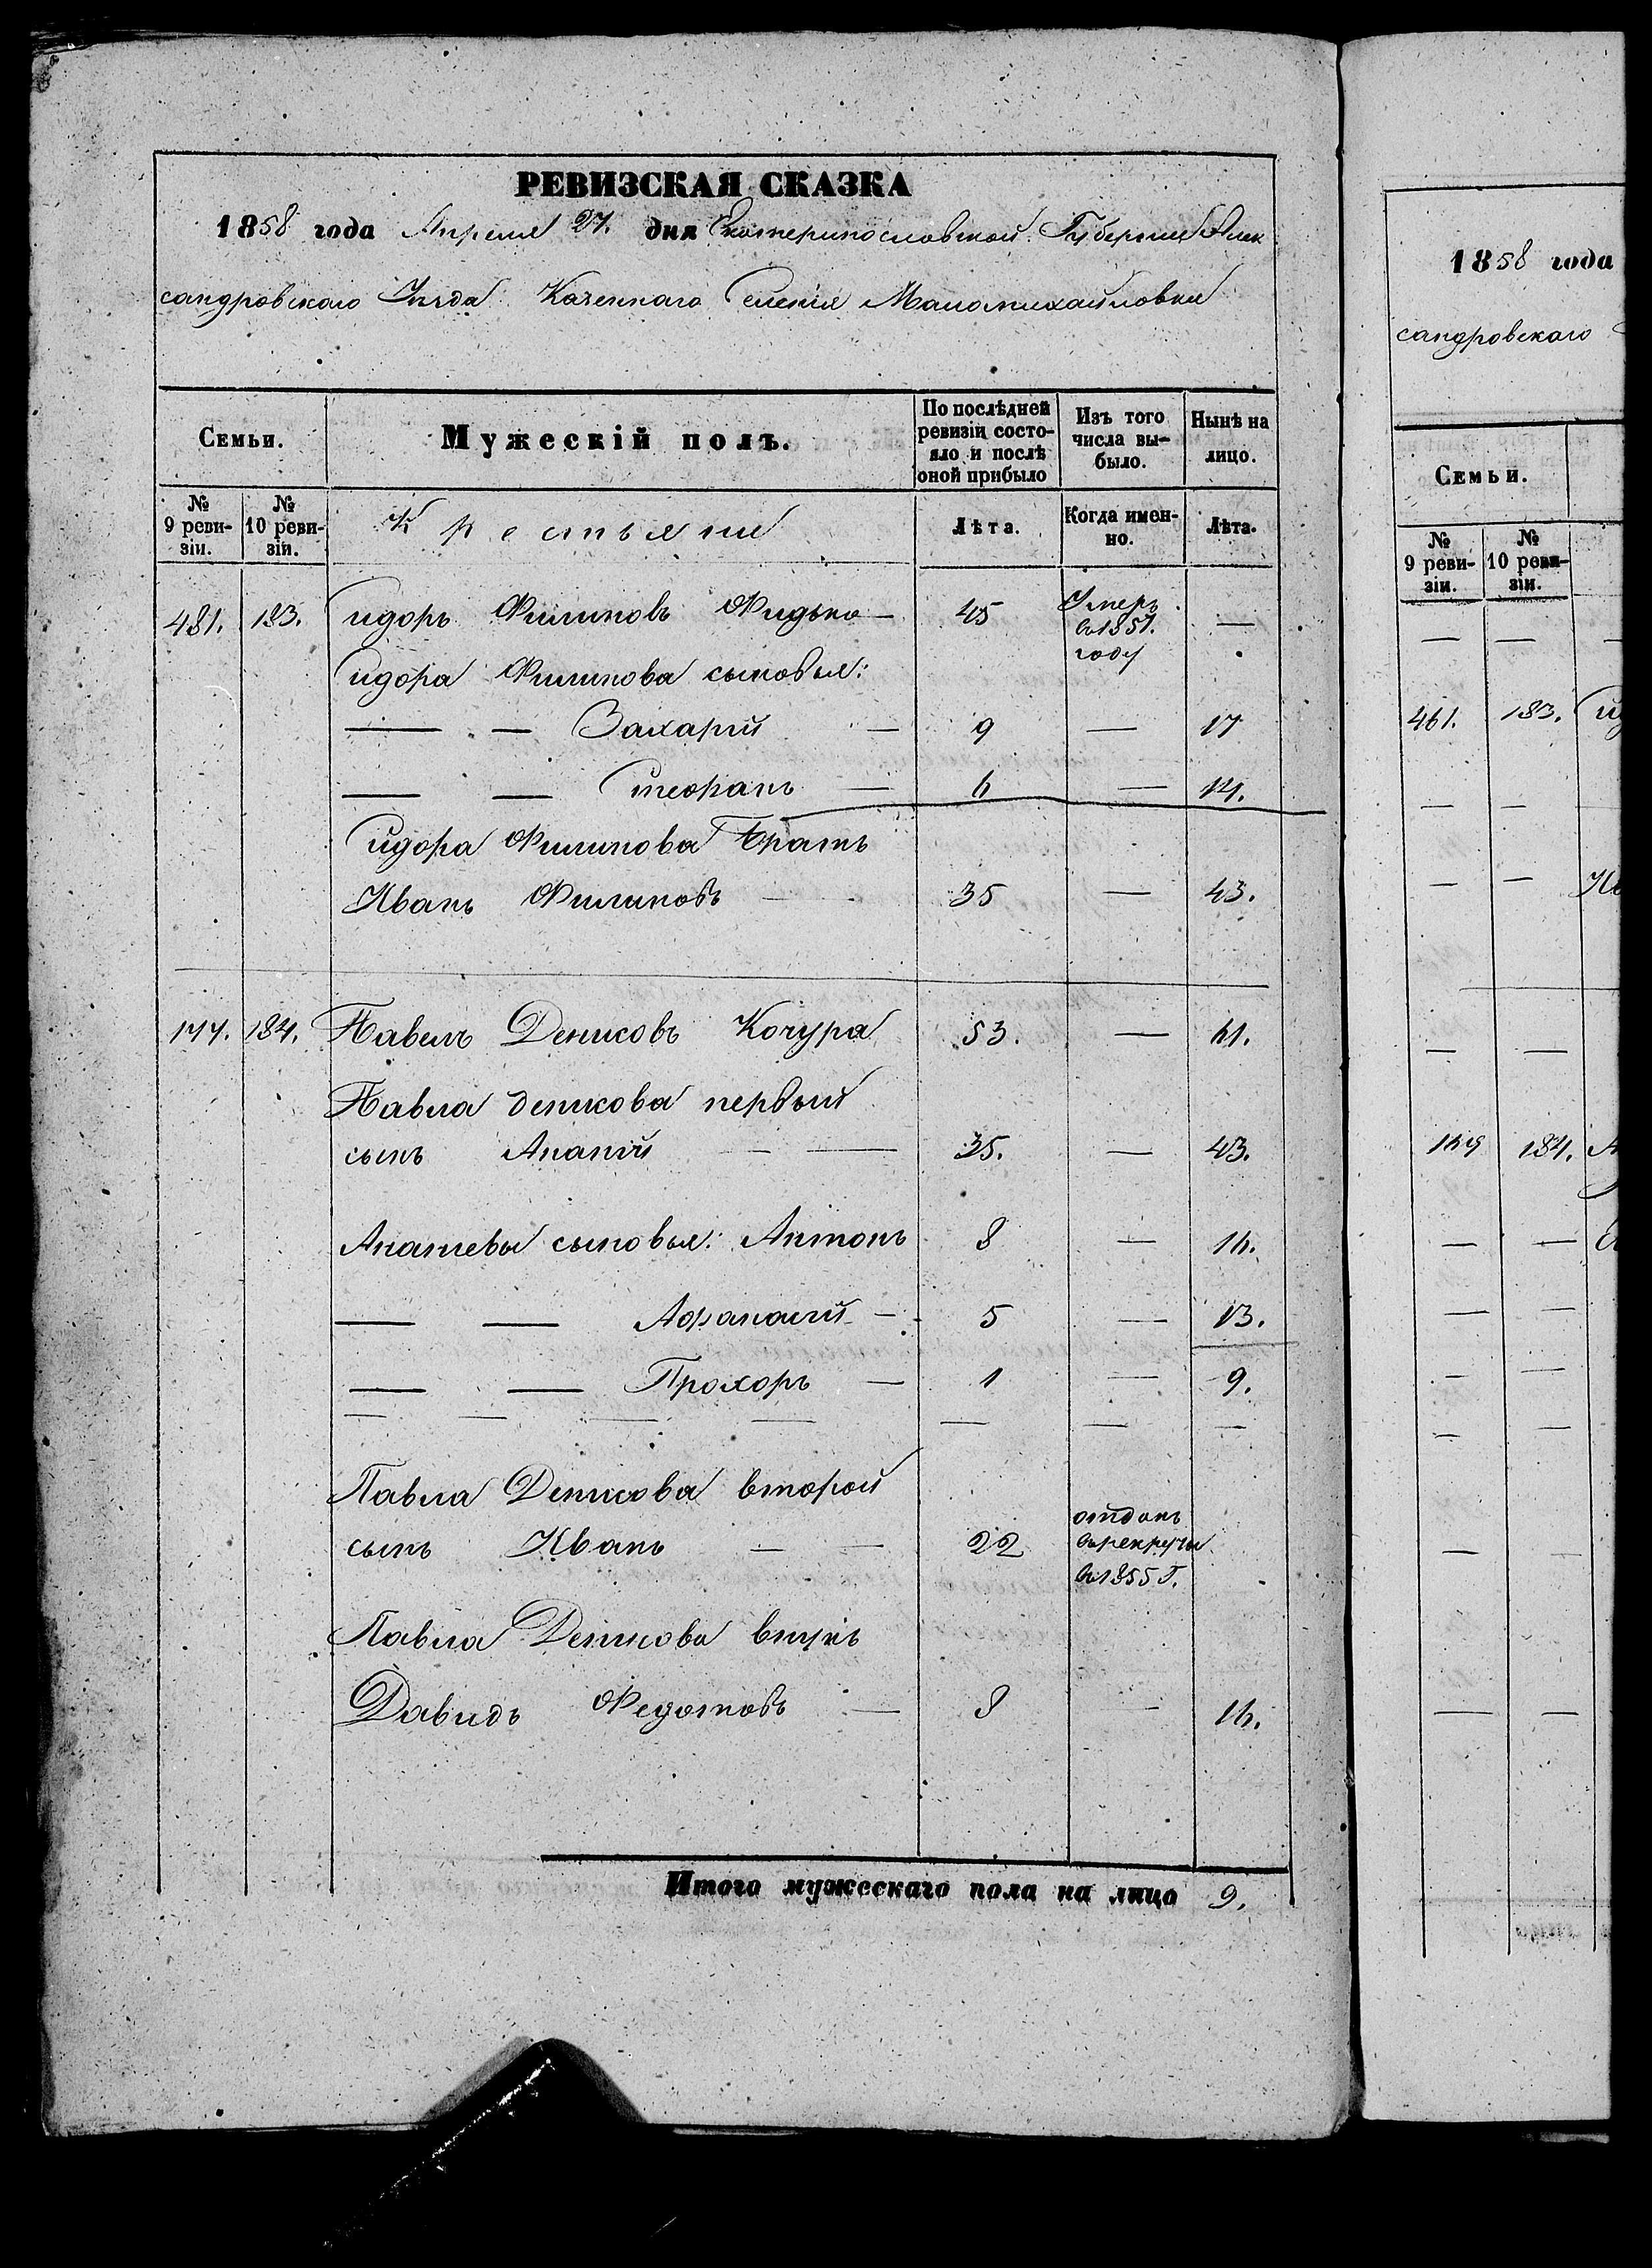 РЕВИЗСКАЯ СКАЗКА
1858 года Апреля 27. дня Екатеринославской Губернии Алек
сандровскаго Уезда Казеннаго Селения Маломихайловки
Семьи.
Мужескій полъ.
По послѣдней ревизіи состо-
яло и послѣ
оной прибыло
Изъ того
числа вы-
было.
Нынѣ на
лицо.
№
9 реви-
зіи.
№
10 реви-
зіи.
Крестьяне
Лѣта.
Когда имен-
но.
Лѣта.
481. 183. Сидоръ Филиповъ Фидько — 45 Умеръ въ 1851. году —
Сидора Филипова сыновья:
— — Захарий — 9 — 17
— — Стефанъ — 6 — 14.
Сидора Филипова братъ
Иванъ Филиповъ — 35 — 43.
177. 184. Павелъ Денисовъ Кочура 53. — 61.
Павла Денисова первый
сынъ Ананій — — 35. — 43.
Ананиевы сыновья: Антонъ 8 — 16.
— — Афанасий — 5 — 13.
— — Прохоръ — 1 — 9.
— — — — — — —
Павла Денисова второй
сынъ Иванъ — — 22 отданъ въ рекруты въ 1855 г.
Павла Денисова внукъ
Давидъ Федотовъ — 8 — 16.
Итого мужескаго пола на лицо 9.
1858 года
сандровскаго
Семьи.
№
9 реви-
зіи.
№
10 реви-
зіи.
461. 183.
184.